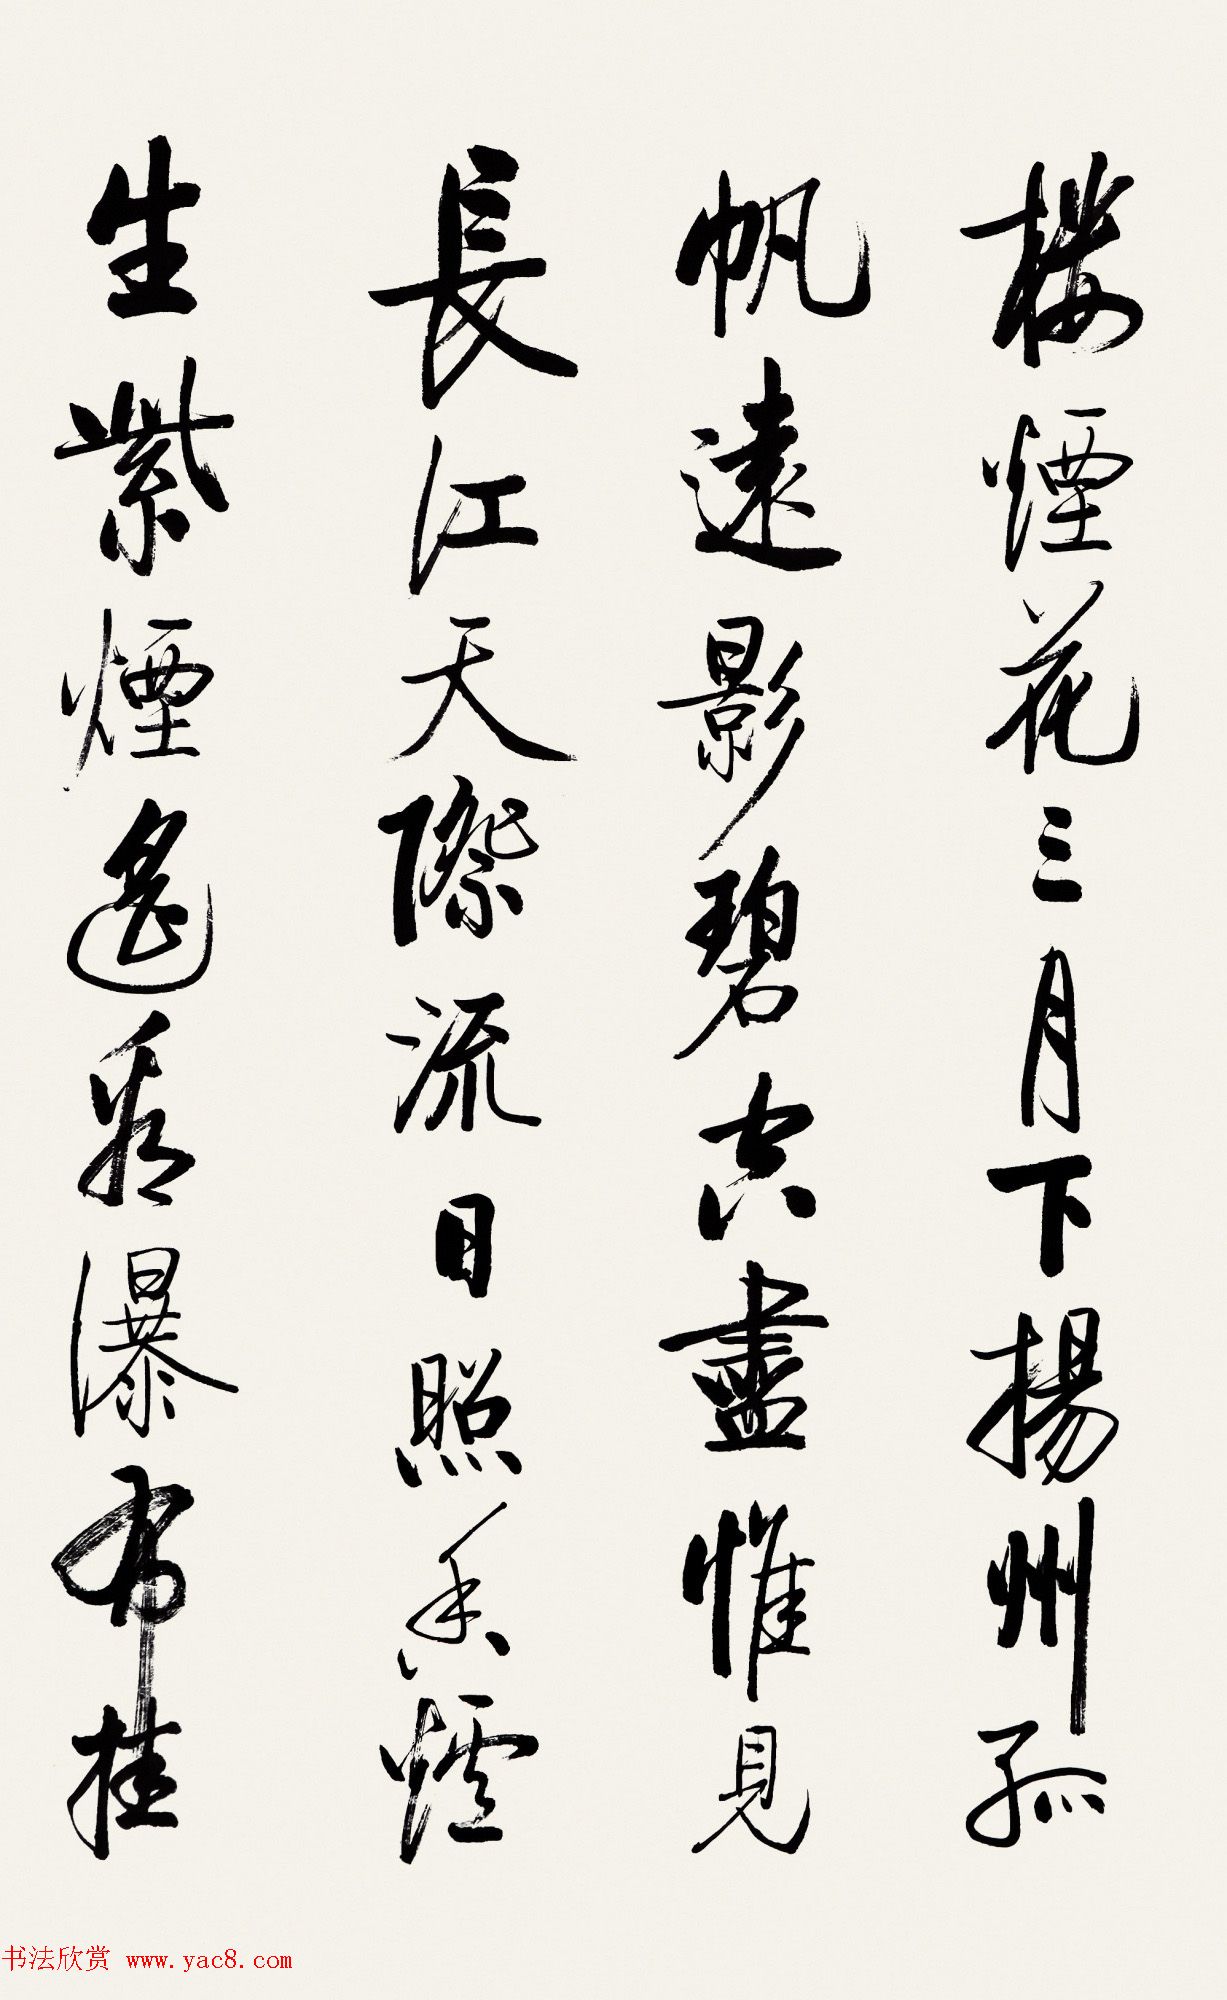 楼煙花三月下揚州孤
帆遠影碧空盡惟見
長江天際流日照香爐
生紫煙遙看瀑布挂
书法欣赏 www.yac8.com